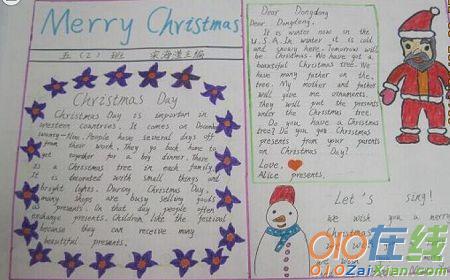 Merry Christmas
五（2）班 主编
Christmas Day
Christmas Day is importan in
western countries. It comes on
People have several days off
from their work. They go back home to
get together for a big dinner. There
is a Christmas tree in each family.
It is decorated with small things and
bright lights. During Christmas Day,
many shops are busy selling goods
as presents. On that day people often
exchange presents. Children like the festival
because they can receive many
beautiful presents.
Dear Dongdong
Dear Dingding,
It is winter now in the
U.S.A. In winter it is cold
and snowy here. Tomorrow will
be Christmas. We have got a
beautiful Christmas tree. We
have many on the
tree. My mother and father
will give me ornaments.
they will put the presents
under the Christmas tree.
Do you have a Christmas
tree? Do you get Christmas
presents from your parents
on Christmas Day?
Love,
Alice presents.
Let's sing!
we wish you a merry
Christmas
we wish
we wish
010在线
010ZaiXian.com